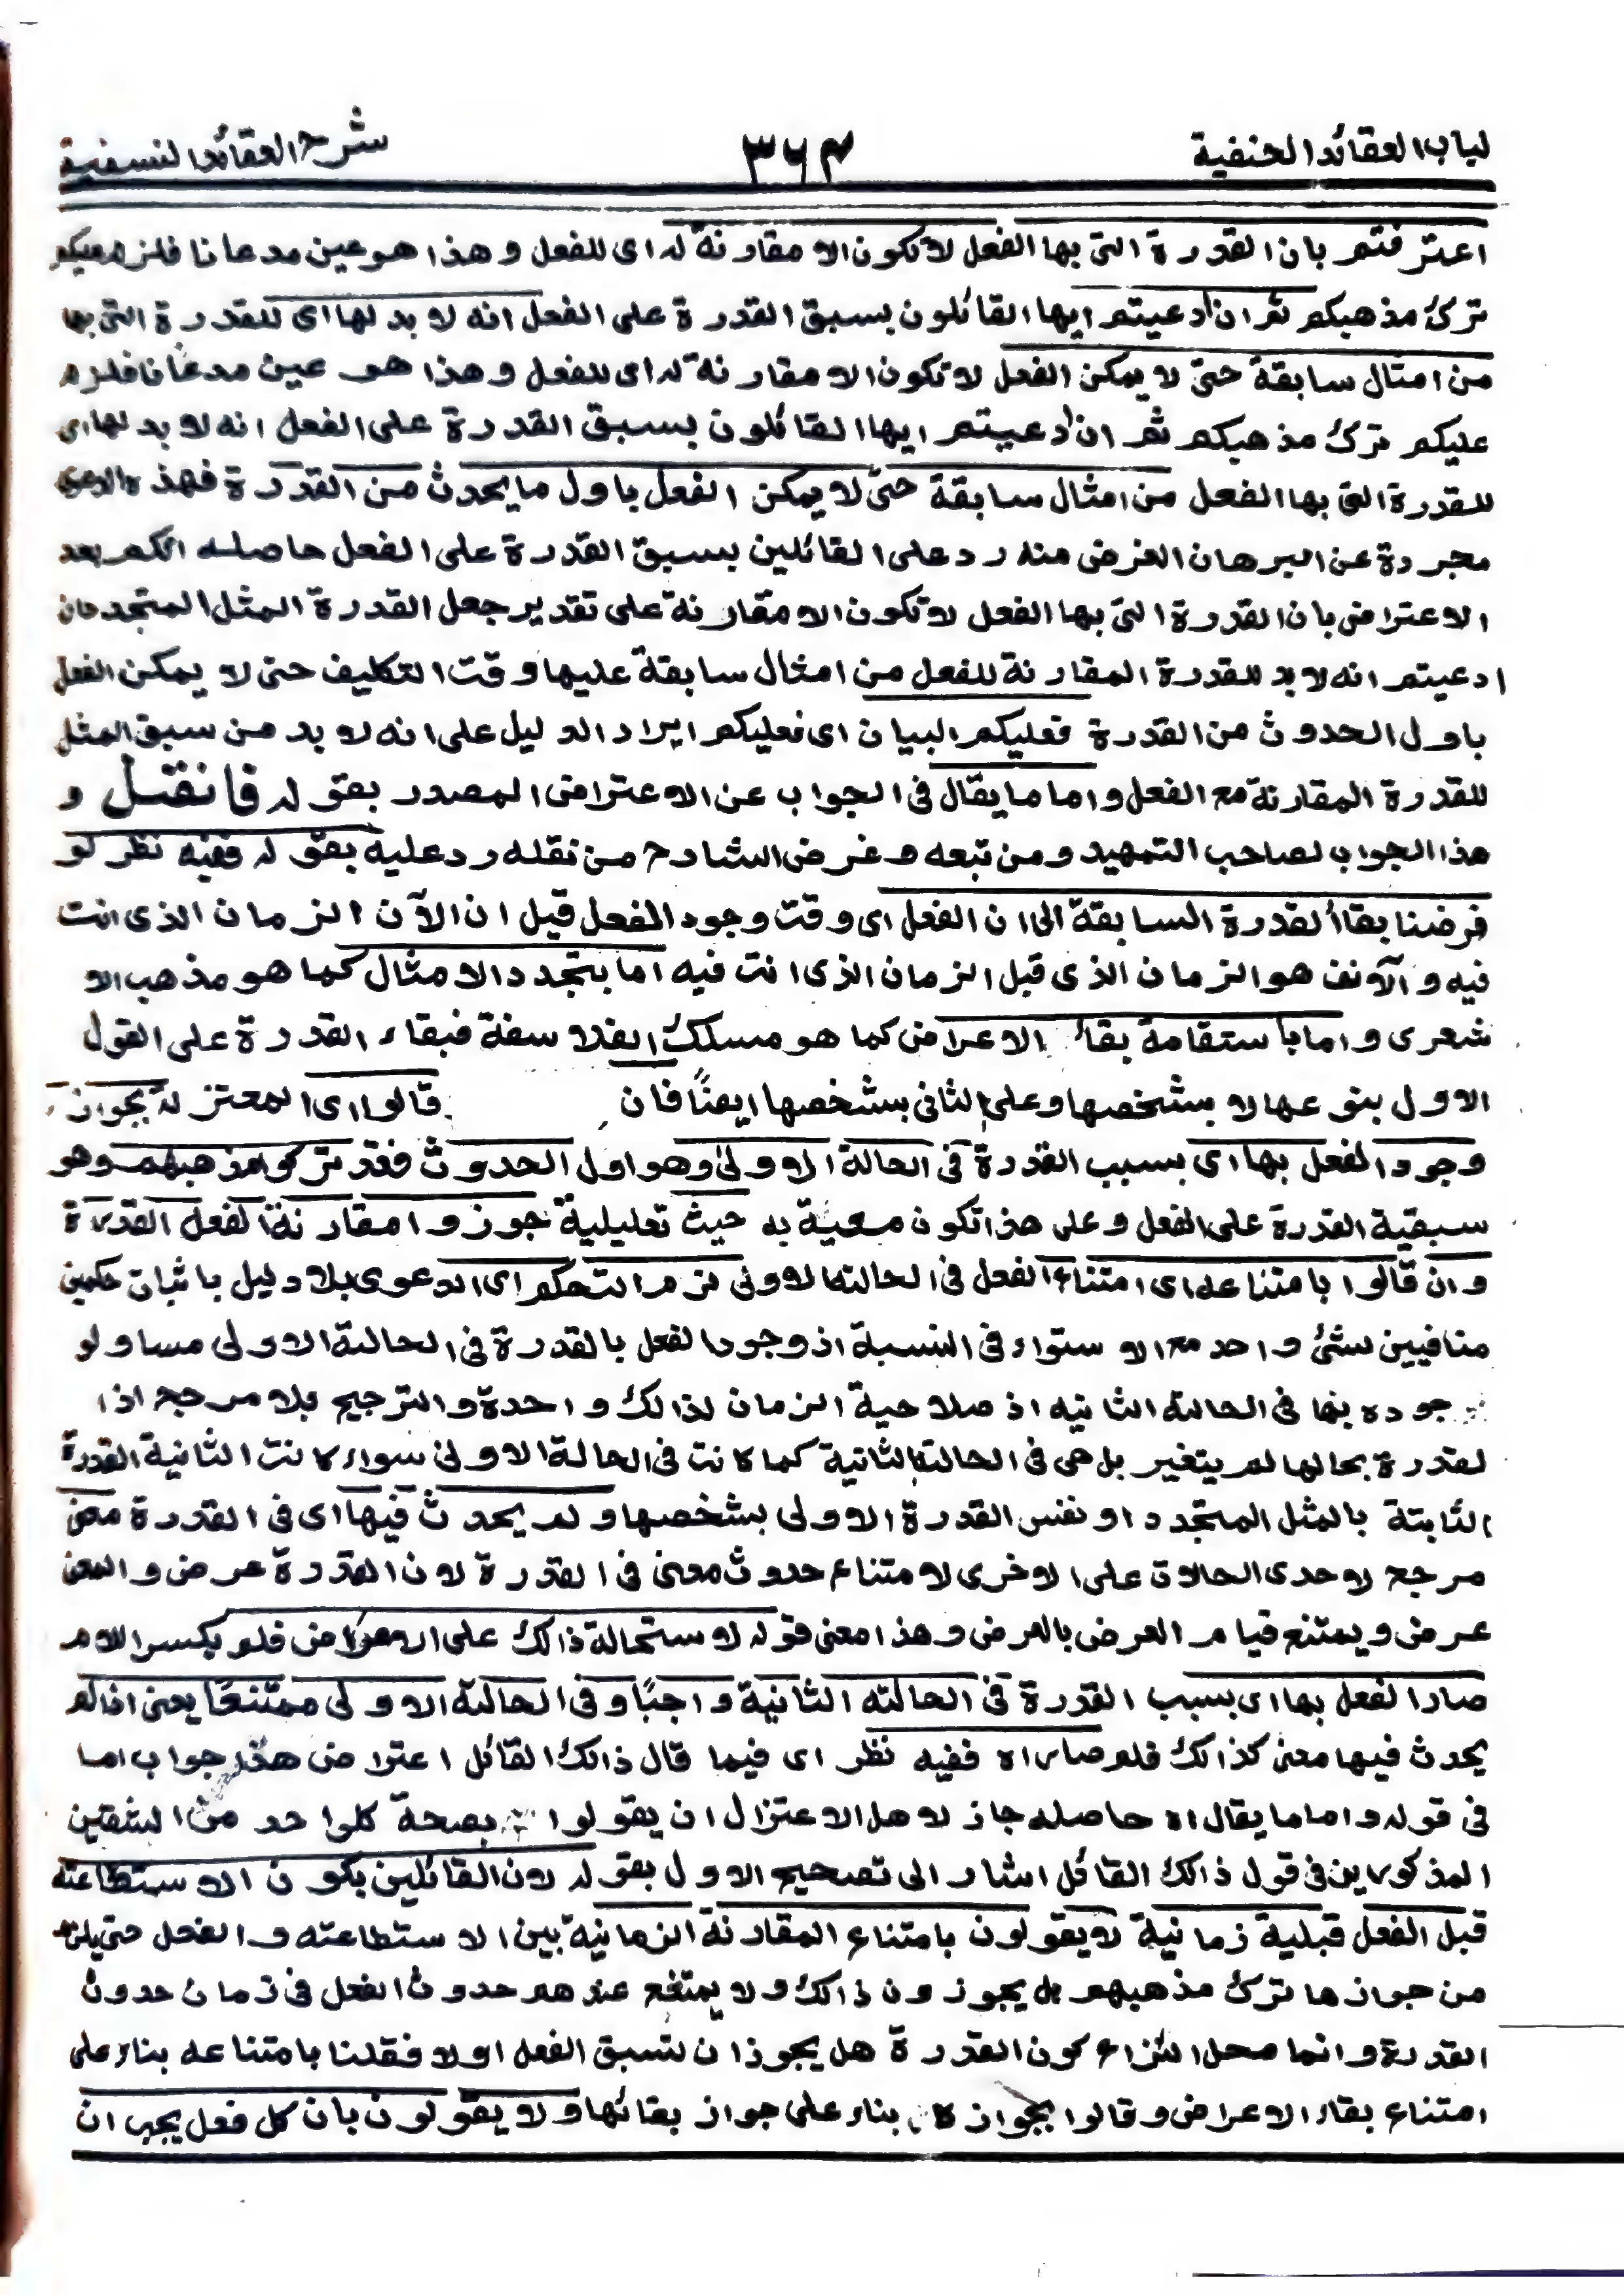 لباب العقائد الحنفية ٣٦٣ شرح العقائد النسفية
اعترفتم بان القدرة التى بها الفعل لا تكون الا مقارنة له اى للفعل وهذا هو عين مدعانا فلزم عليكم
ترك مذهبكم ثم ان ادعيتم ايها القائلون بسبق القدرة على الفعل انه لا بد لها اى للقدرة التى بها
من امثال سابقة حتى لا يمكن الفعل لا تكون الا مقارنة له اى للفعل وهذا هو عين مدعانا فلزم
عليكم ترك مذهبكم ثم ان ادعيتم ايها القائلون بسبق القدرة على الفعل انه لا بد لها اى
للقدرة التى بها الفعل من امثال سابقة حتى لا يمكن الفعل باول ما يحدث من القدرة فهذه الدعوى
مجردة عن البرهان الغرض منه رد على القائلين بسبق القدرة على الفعل حاصله انكم بعد
الاعتراض بان القدرة التى بها الفعل لا تكون الا مقارنة على تقدير جعل القدرة المثل المتجدد فان
ادعيتم انه لا بد للقدرة المقارنة للفعل من امثال سابقة عليها وقت التكليف حتى لا يمكن الفعل
باول الحدوث من القدرة فعليكم البيان اى فعليكم ايراد الدليل على انه لا بد من سبق المثل
للقدرة المقارنة مع الفعل واما ما يقال فى الجواب عن الاعتراض المصدر بقوله فان قتل و
هذا الجواب لصاحب التمهيد ومن تبعه وغرض الشارح من نقله رد عليه بقوله ففيه نظر لو
فرضنا بقاء القدرة السابقة الى ان الفعل اى وقت وجود الفعل قيل ان الآن الزمان الذى انت
فيه و الآنف هو الزمان الذى قبل الزمان الذى انت فيه اما بتجدد الامثال كما هو مذهب الا
شعرى و اما باستقامة بقاء الاعراض كما هو مسلك الفلاسفة فبقاء القدرة على القول
الاول بنوعها لا بشخصها وعلى الثانى بشخصها ايضًا فان قالوا اى المعتزلة بجواز
وجود الفعل بها اى بسبب القدرة فى الحالة الاولى وهو اول الحدوث فقد تركوا مذهبهم وهو
سبقية القدرة على الفعل وعلى هذا تكون معية به حيث تعليلية جوزوا مقارنة الفعل القدرة
وان قالوا بامتناعه اى امتناع الفعل فى الحالة الاولى لزم التحكم اى الدعوى بلا دليل باثبات حكمين
منافيين لشئ واحد مع الاستواء فى النسبة اذ وجود الفعل بالقدرة فى الحالة الاولى مساو لو
جوده بها فى الحالة الثانيه اذ صلاحية الزمان لذالك واحدة والترجيح بلا مرجح اذا
لقدرة بحالها لم يتغير بل هى فى الحالة الثانية كما كانت فى الحالة الاولى سواء كانت الثانية القدرة
الثابتة بالمثل المتجدد او نفس القدرة الاولى بشخصها ولم يحدث فيها اى فى القدرة معنى
مرجح لاحدى الحالات على الاخرى لامتناع حدوث معنى فى القدرة لان القدرة عرض و المعنى
عرض و يمتنع قيام العرض بالعرض وهذا معنى قوله لاستحالة ذالك على الاعراض فلم بكسر اللام
صار الفعل بها اى بسبب القدرة فى الحالته الثانية واجبًا و فى الحالة الاولى ممتنعًا يعنى اذا لم
يحدث فيها معنى كذالك فلم صار اه ففيه نظر اى فيما قال ذالك القائل اعتراض هذا جواب اما
فى قوله واما ما يقال اه حاصله جاز لاهل الاعتزال ان يقولوا بصحة كلواحد من الشقين
المذكورين فى قول ذالك القائل اشار الى تصحيح الاول بقوله لان القائلين بكون الاستطاعته
قبل الفعل قبلية زمانية لا يقولون بامتناع المقارنة الزمانية بين الاستطاعته و الفعل حتى يلزم
من جوازها ترك مذهبهم بل يجوزون ذالك ولا يمتنع عندهم حدوث الفعل فى زمان حدوث
القدرة وانما محل النزاع كون القدرة هل يجوز ان تسبق الفعل اولا فقلنا بامتناعه بناء على
امتناع بقاء الاعراض وقالوا بجوازه بناء على جواز بقائها ولا يقولون بان كل فعل يجب ان